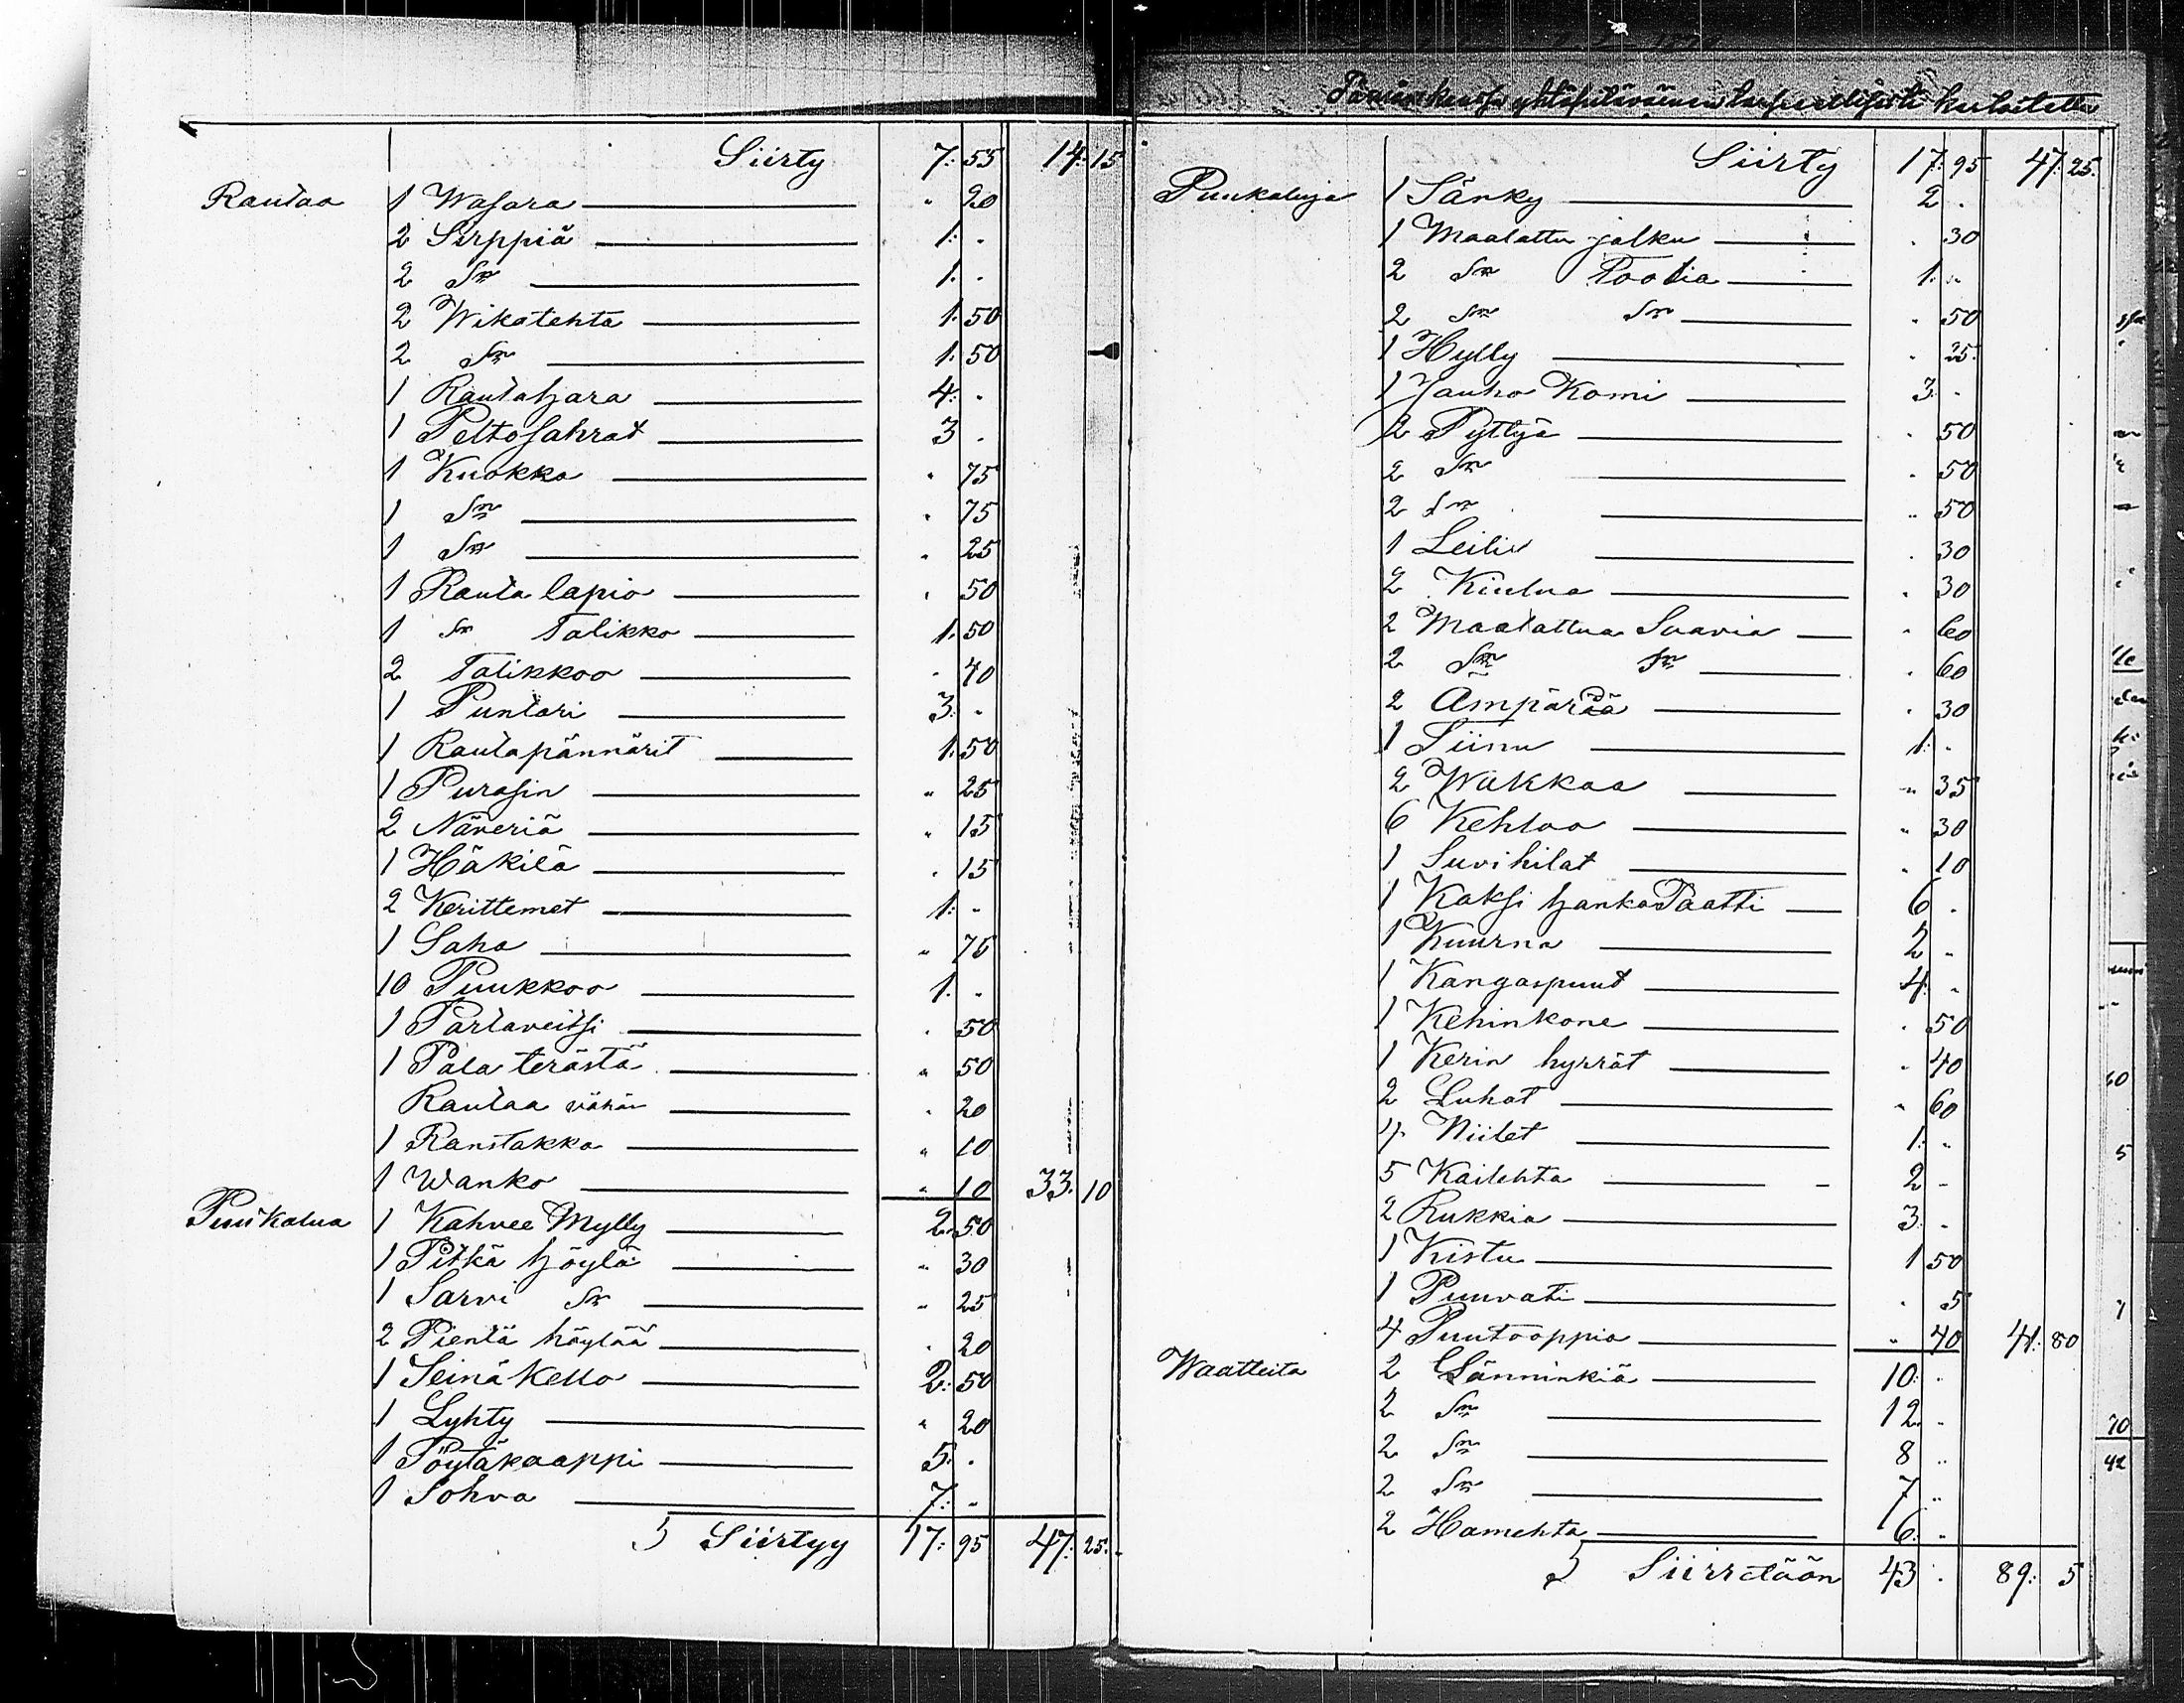 Siirty 7: 55 14: 15
Rautaa 1 Wasara " 20
2 Sirppiä 1: "
2 Sn 1. "
2 Wikatehta 1: 50
2 Sn 1: 50
1 Rautahara 4: "
1 Peltosahrat 3 "
1 Kuokka " 75
1 Sn " 75
1 Sn " 25
1 Rauta lapio " 50
1 Sn Talikko 1. 50
2 Talikkoo " 40
1 Puntari 3: "
1 Rautapännärit 1. 50
1 Purasin " 25
2 Näveriä " 15
1 Häkilä " 15
2 Kerittemet 1: "
1 Saha " 75
10 Puukkoo 1. "
1 Partaveitsi " 50
1 Pala terästä " 50
Rautaa vähän " 20
1 Ranstakka " 10
1 Wanko " 10 33. 10
Puukalua 1 Kahvee Mylly 2. 50
1 Pitkä höylä " 30
1 Sarvi Sn " 25
2 Pientä höylää " 20
1 Seinäkello 2: 50
1 Lyhty " 20
1 Pöytäkaappi 5. "
1 Sohva 7. "
Siirtyy 17: 95 47: 25.
Siirty 17: 95 47: 25.
Puukaluja 1 Sänky 2 "
1 Maalattu jalku " 30
2 Sn Tootia 1. "
2 Sn Sn " 50
1 Hylly " 25.
1 Jauho Komi 3. "
2 Pyttyä " 50
2 Sn " 50
2 Sn " 50
1 Leili " 30
2 Kiulua " 30
2 Maalattua Saavia " 60
2 Sn Sn " 60
2 Ämpäriä " 30
1 Tiinu 1: "
2 Wakkaa " 35
6 Kehloo " 30
1 Suvihilat " 10
1 Kaksi hanka Paatti 6 "
1 Kuurna 2 "
1 Kangaspuut 4. "
1 Kehinkone " 50
1 Kerin hyrrät " 40
2 Luhat " 60
4 Niilet 1: "
5 Kaitehta 2 "
2 Rukkia 3. "
1 Kistu 1 50
1 Puuvati " 5
4 Puutooppia " 40 41: 80
Waatteita 2 Länninkiä 10: "
2 Sn 12. "
2 Sn 8 "
2 Sn 7 "
2 Hamehta 6. "
Siirretään 43 " 89: 5